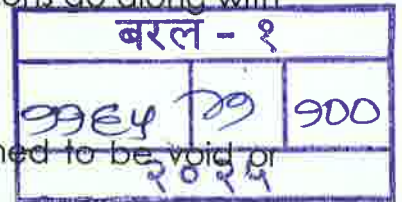 along with
बरल - १
११६५ १००
ned to be void or
२०२५